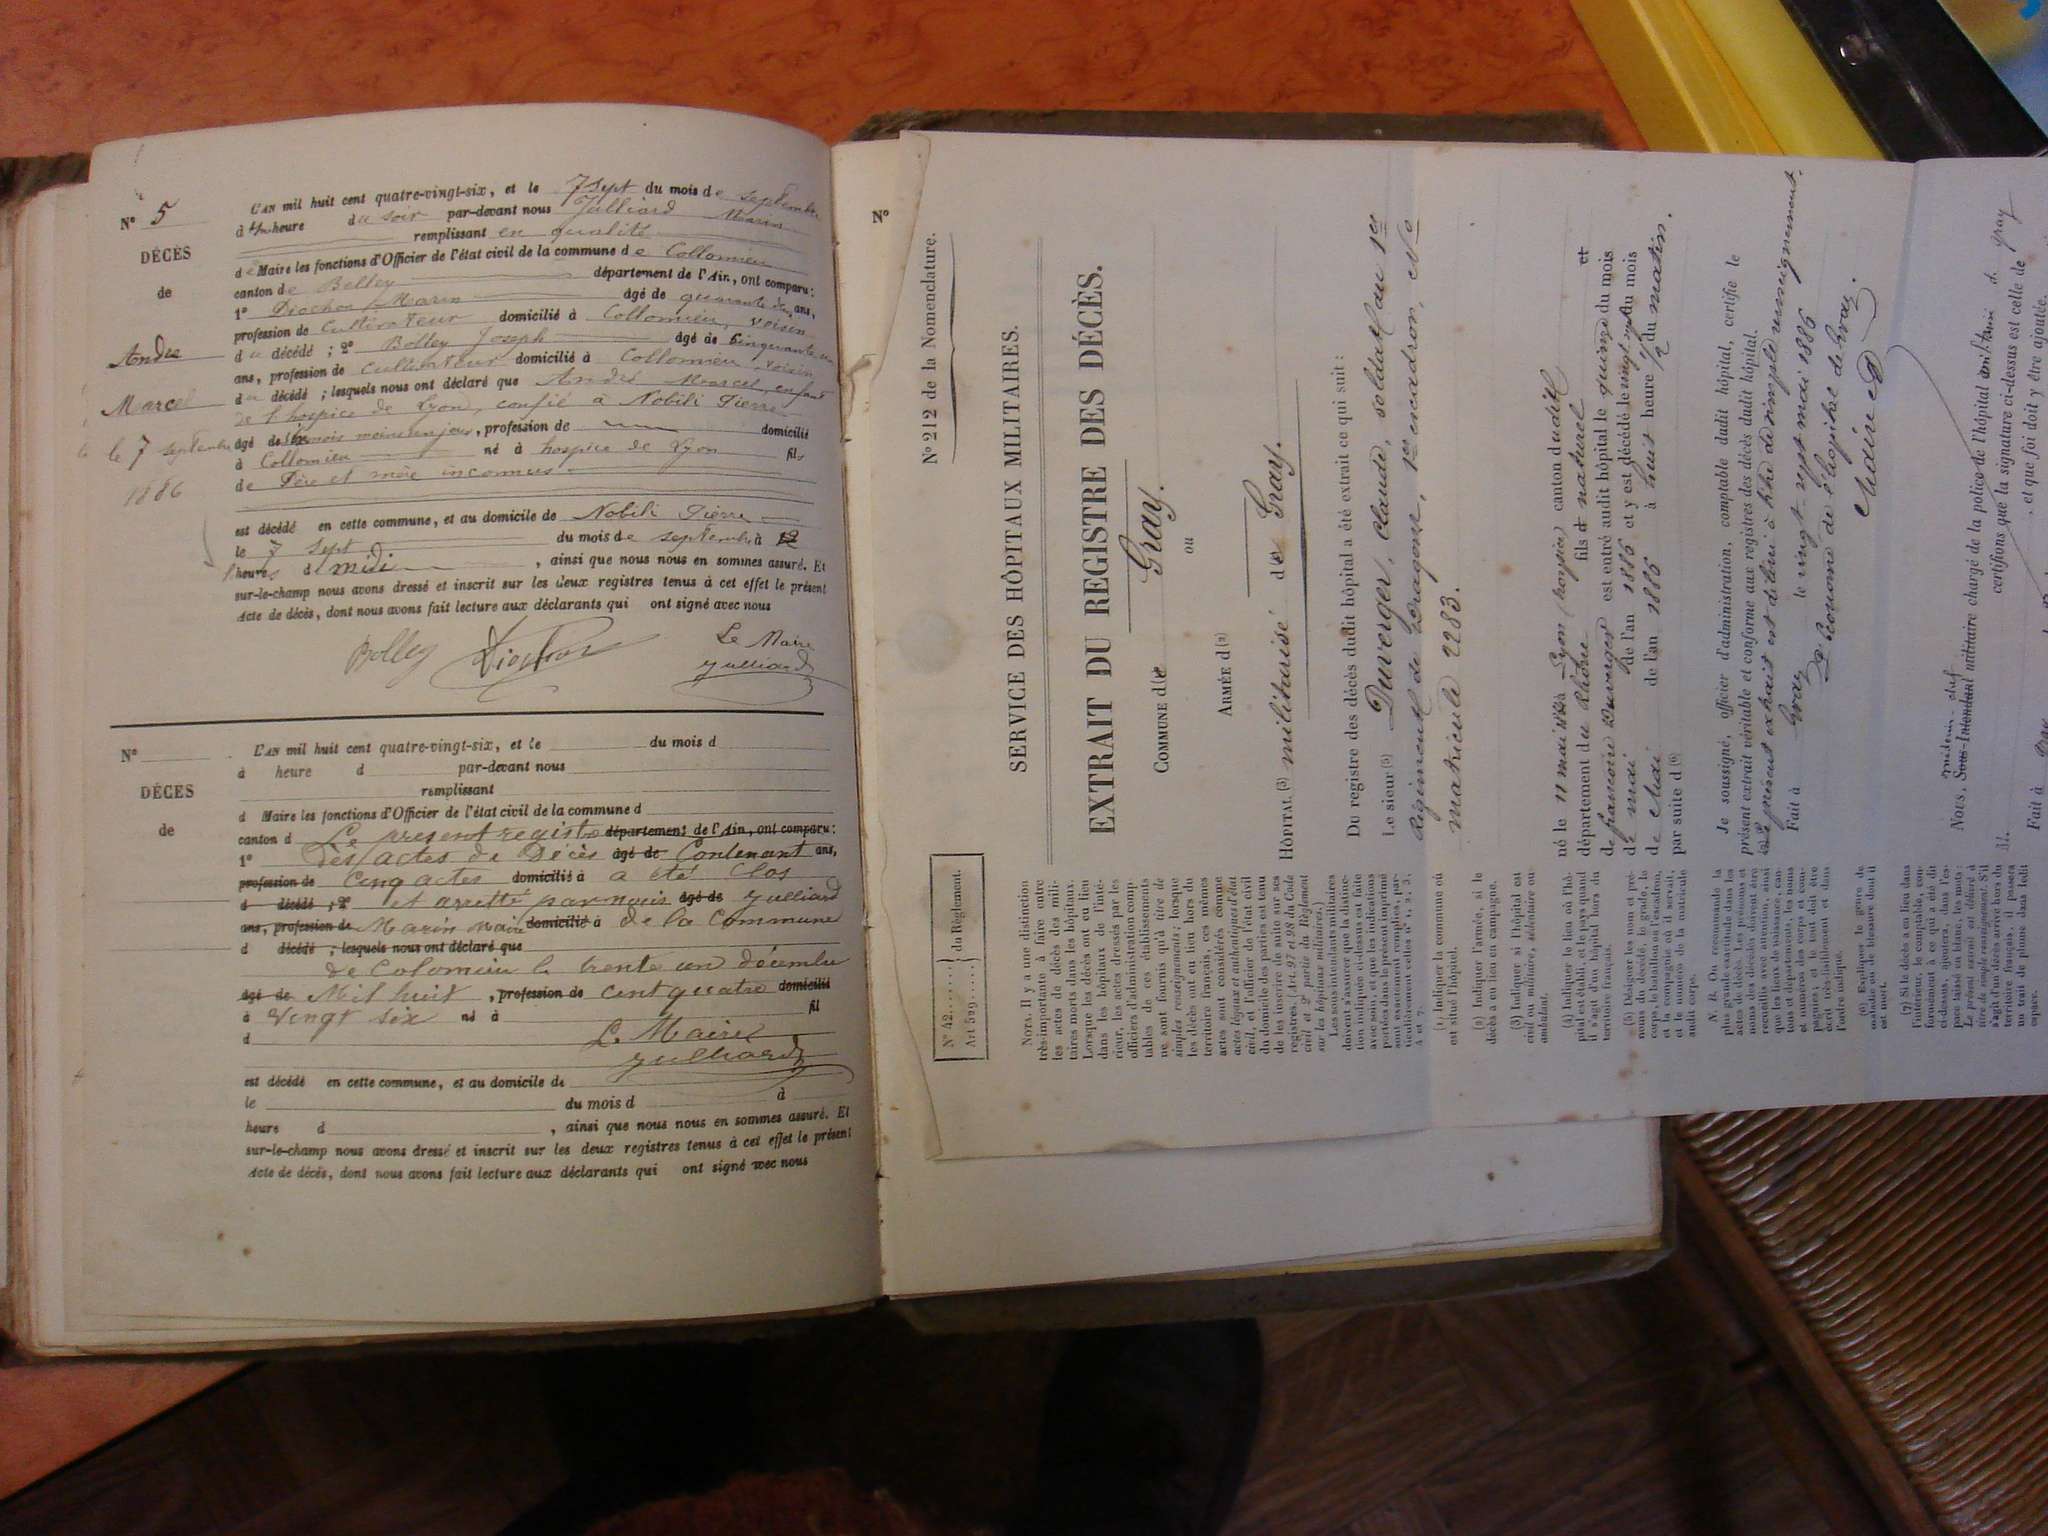 N° 5
DÉCÈS
de
André
Marcel
le 7 septembre
1886
L'AN mil huit cent quatre-vingt-six, et le 7 sept du mois de septembre
à heure du soir par-devant nous Julliard Marin
remplissant en qualité
de Maire les fonctions d'Officier de l'état civil de la commune de Collomieu
canton de Belley département de l'Ain, ont comparu:
1° Diochon Marin âgé de quarante ans,
profession de cultivateur domicilié à Collomieu, voisin
du décédé; 2° Bolley Joseph âgé de cinquante un
ans, profession de cultivateur domicilié à Collomieu, voisin
du décédé; lesquels nous ont déclaré que André Marcel, enfant
de l'hospice de Lyon, confié à Nobili Pierre
âgé de mois moins un jour, profession de domicilié
à Collomieu né à hospice de Lyon fils
de Père et mère inconnus
est décédé en cette commune, et au domicile de Nobili Pierre
le 7 sept du mois de septembre à 12
heures de midi, ainsi que nous nous en sommes assuré. Et
sur-le-champ nous avons dressé et inscrit sur les deux registres tenus à cet effet le présent
Acte de décès, dont nous avons fait lecture aux déclarants qui ont signé avec nous
Bolley Diochon Le Maire
Julliard
N°
DÉCES
de
L'AN mil huit cent quatre-vingt-six, et le du mois d
à heure d par-devant nous
remplissant
d Maire les fonctions d'Officier de l'état civil de la commune d
canton d Le present registre département de l'Ain, ont comparu:
1° des actes de Décès âgé de Contenant ans,
profession de Cinq actes domicilié à a été Clos
d décédé; 2° et arretté par nous âgé de Julliard
ans, profession de Marin Maire domicilié à de la Commune
d décédé; lesquels nous ont déclaré que
de Colomieu le trente un décembre
âgé de Mil huit, profession de cent quatre domicilié
à vingt six né à fil
d Le Maire
Julliard
est décédé en cette commune, et au domicile de
le du mois d à
heure d, ainsi que nous nous en sommes assuré. Et
sur-le-champ nous avons dressé et inscrit sur les deux registres tenus à cet effet le présent
Acte de décès, dont nous avons fait lecture aux déclarants qui ont signé avec nous
N°
N° 212 de la Nomenclature.
N° 42. du Règlement.
Art 529
SERVICE DES HÔPITAUX MILITAIRES.
EXTRAIT DU REGISTRE DES DÉCÈS.
COMMUNE d(1)e Gray.
ou
ARMÉE d(2)
HÔPITAL (3) militarisé de Gray.
Du registre des décès dudit hôpital a été extrait ce qui suit:
Le sieur (5) Duverger, Claude, soldat au 1er
Régiment de Dragons, 1er escadron, No
matricule 2283.
né le 11 mai à Lyon (hospice) canton dudit
département du Rhône fils naturel et
de françoise Duverger est entré audit hôpital le quinze du mois
de mai de l'an 1886 et y est décédé le vingt sept du mois
de Mai de l'an 1886 à huit heure 1/2 du matin.
par suite d (6)
Je soussigné, officier d'administration, comptable dudit hôpital, certifie le
présent extrait véritable et conforme aux registres des décès dudit hôpital.
Le présent extrait est délivré à titre de simple renseignement.
Fait à Gray le vingt-sept mai 1886
L'Econome de l'hospice de Gray.
Maire
médecin chef
NOUS, Sous-Intendant militaire chargé de la police de l'hôpital militaire d. Gray
certifions que la signature ci-dessus est celle de
M. , et que foi doit y être ajoutée.
Fait à Gray
NOTA. Il y a une distinction
très-importante à faire entre
les actes de décès des mili-
taires morts dans les hôpitaux.
Lorsque les décès ont eu lieu
dans les hôpitaux de l'inté-
rieur, les actes dressés par les
officiers d'administration comp-
tables de ces établissements
ne sont fournis qu'à titre de
simples renseignements; lorsque
les décès ont eu lieu hors du
territoire français, ces mêmes
actes sont considérés comme
actes légaux et authentiques d'état
civil, et l'officier de l'état civil
du domicile des parties est tenu
de les inscrire de suite sur ses
registres. (Art. 97 et 98 du Code
civil et 2e partie du Règlement
sur les hôpitaux militaires.)
Les sous-intendants militaires
doivent s'assurer que la distinc-
tion indiquée ci-dessus est faite
avec soin, et que les indications
portées dans le présent imprimé
sont exactement remplies, par-
ticulièrement celles nos 1, 2, 3,
4 et 7.
(1) Indiquer la commune où
est situé l'hôpital.
(2) Indiquer l'armée, si le
décès a eu lieu en campagne.
(3) Indiquer si l'hôpital est
civil ou militaire, sédentaire ou
ambulant.
(4) Indiquer le lieu où l'hô-
pital est établi, et le pays quand
il s'agit d'un hôpital hors du
territoire français.
(5) Désigner les nom et pré-
noms du décédé, le grade, le
corps, le bataillon ou l'escadron,
la compagnie où il servait,
et le numéro de la matricule
audit corps.
N. B. On recommande la
plus grande exactitude dans les
actes de décès. Les prénoms et
noms des décédés doivent être
recueillis avec attention, ainsi
que les lieux de naissance, can-
tons et départements, les noms
et numéros des corps et com-
pagnies; et le tout doit être
écrit très-lisiblement et dans
l'ordre indiqué.
(6) Expliquer le genre de
maladie ou de blessure dont il
est mort.
(7) Si le décès a eu lieu dans
l'intérieur, le comptable, con-
formément à ce qui a été dit
ci-dessus, ajoutera, dans l'es-
pace laissé en blanc, les mots:
Le présent extrait est délivré à
titre de simple renseignement. S'il
s'agit d'un décès arrivé hors du
territoire français, il passera
un trait de plume dans ledit
espace.